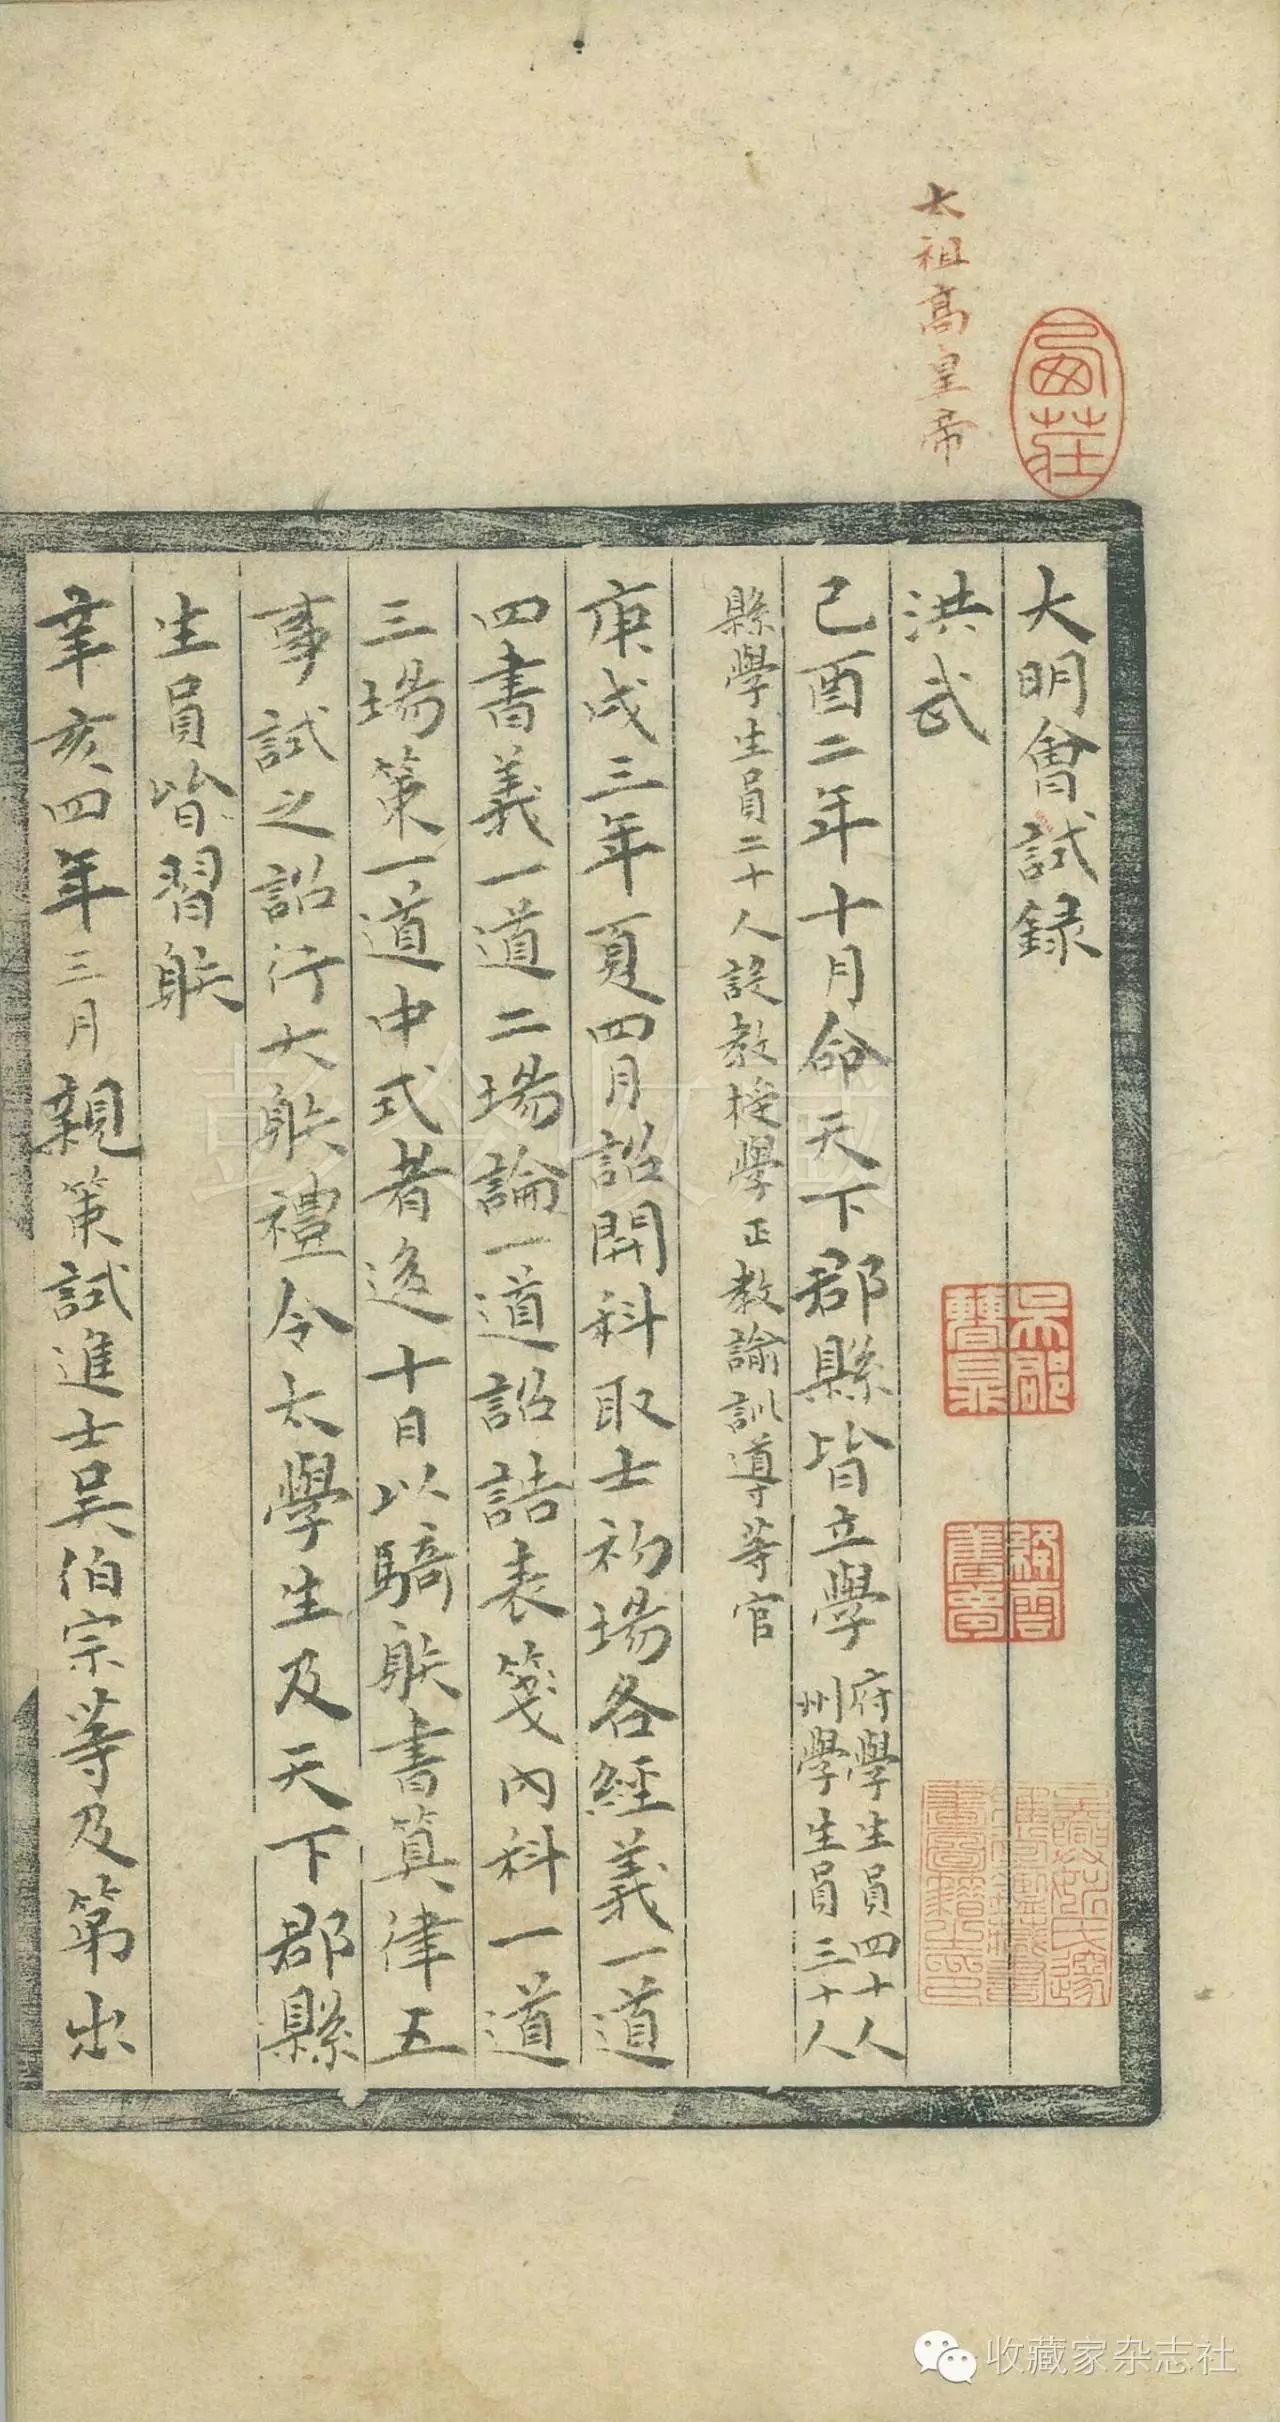 太祖高皇帝
大明會試録
洪武
己酉二年十月命天下郡縣皆立學府學生員四十人
州學生員三十人
縣學生員二十人設教授學正教諭訓導等官
庚戌三年夏四月詔開科取士初場各經義一道
四書義一道二場論一道詔誥表箋內科一道
三場策一道中式者逡十日以騎躲書算律五
事試之詔行大躲禮令太學生及天下郡縣
生員皆習躲
辛亥四年三月親策試進士吴伯宗等及第出
收藏家杂志社